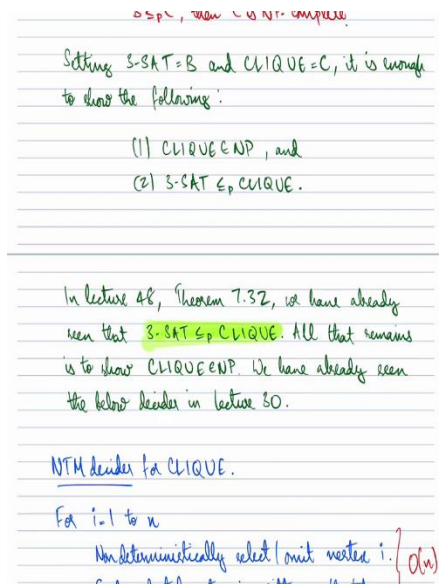 B ≤p C, then C is NP-complete
Setting 3-SAT = B and CLIQUE = C, it is enough
to show the following:
(1) CLIQUE ∈ NP, and
(2) 3-SAT ≤p CLIQUE.
In lecture 48, Theorem 7.32, we have already
seen that 3-SAT ≤p CLIQUE. All that remains
is to show CLIQUE ∈ NP. We have already seen
the below decider in lecture 30.
NTM decider for CLIQUE.
For i=1 to n
Nondeterministically select / omit vertex i. O(n)